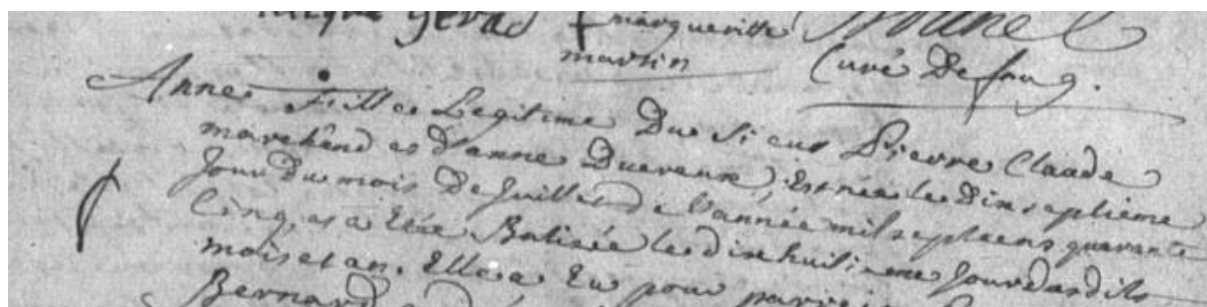 margueritte
martin Curé De foug.
Anne fille Legitime Du Sieur Pierre Claude
marchand et d'anne Duveaux, Est née le dix septieme
Jour Du mois De Juillet De l'année mil sept cens quarante
Cinq, et a Eté Batisée le dix huitieme Jour desdits
mois et an. Elle a Eu pour parrein
Bernard